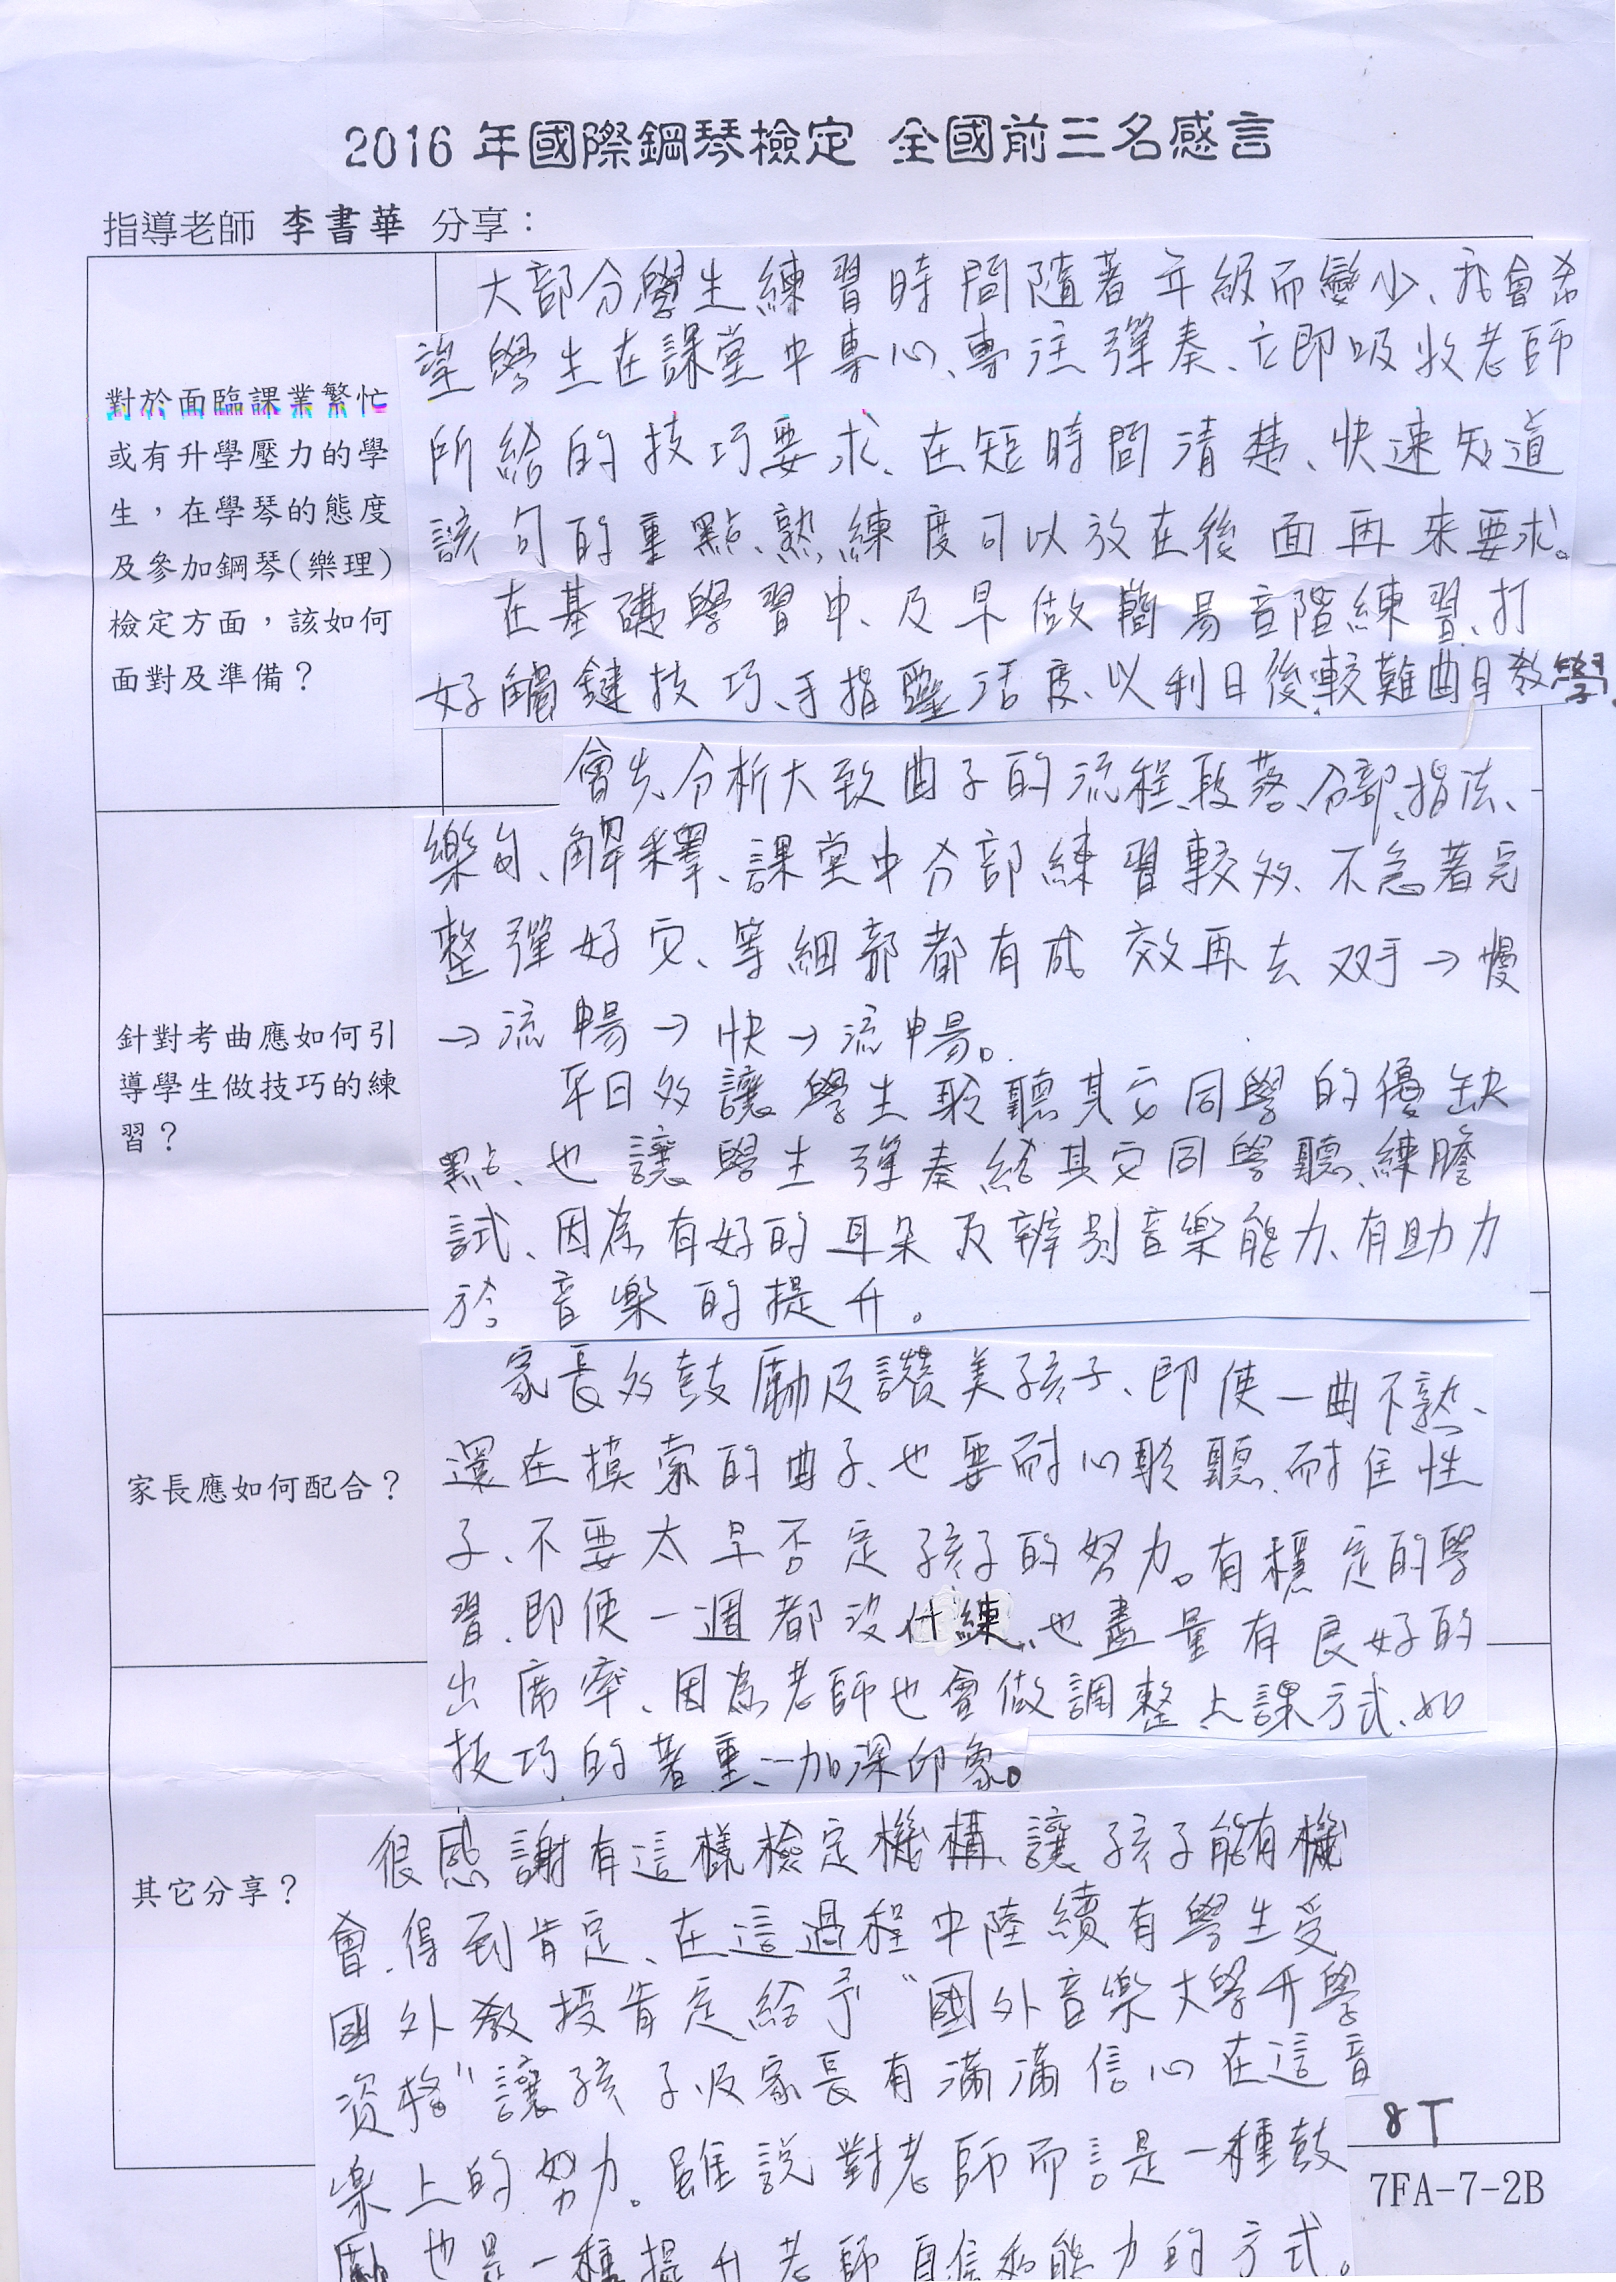 2016 年國際鋼琴檢定 全國前三名感言
指導老師 李書華 分享：
對於面臨課業繁忙
或有升學壓力的學
生，在學琴的態度
及參加鋼琴(樂理)
檢定方面，該如何
面對及準備？
大部分學生練習時間隨著年級而變少、我會希
望學生在課堂中專心、專注彈奏、立即吸收老師
所給的技巧要求、在短時間清楚、快速知道
該句的重點、熟練度可以放在後面再來要求。
在基礎學習中、及早做簡易音階練習、打
好觸鍵技巧、手指靈活度、以利日後較難曲目教學。
針對考曲應如何引
導學生做技巧的練
習？
會先分析大致曲子的流程、段落、分部、指法、
樂句、解釋、課堂中分部練習較多、不急著完
整彈好它、等細部都有成效再去双手→慢
→流暢→快→流暢。
平日多讓學生聆聽其它同學的優缺
點、也讓學生彈奏給其它同學聽、練膽
試、因為有好的耳朵及辨別音樂能力、有助力
於音樂的提升。
家長應如何配合？
家長多鼓勵及讚美孩子、即使一曲不熟、
還在摸索的曲子、也要耐心聆聽、耐住性
子、不要太早否定孩子的努力。有穩定的學
習、即使一週都沒什練、也盡量有良好的
出席率、因為老師也會做調整上課方式、如
技巧的著重…加深印象。
其它分享？
很感謝有這樣檢定機構、讓孩子能有機
會、得到肯定、在這過程中陸續有學生受
國外教授肯定給予“國外音樂大學升學
資格"讓孩子及家長有滿滿信心在這音
樂上的努力。雖說對老師而言是一種鼓
勵也是一種提升老師自信和能力的方式。
8T
7FA-7-2B